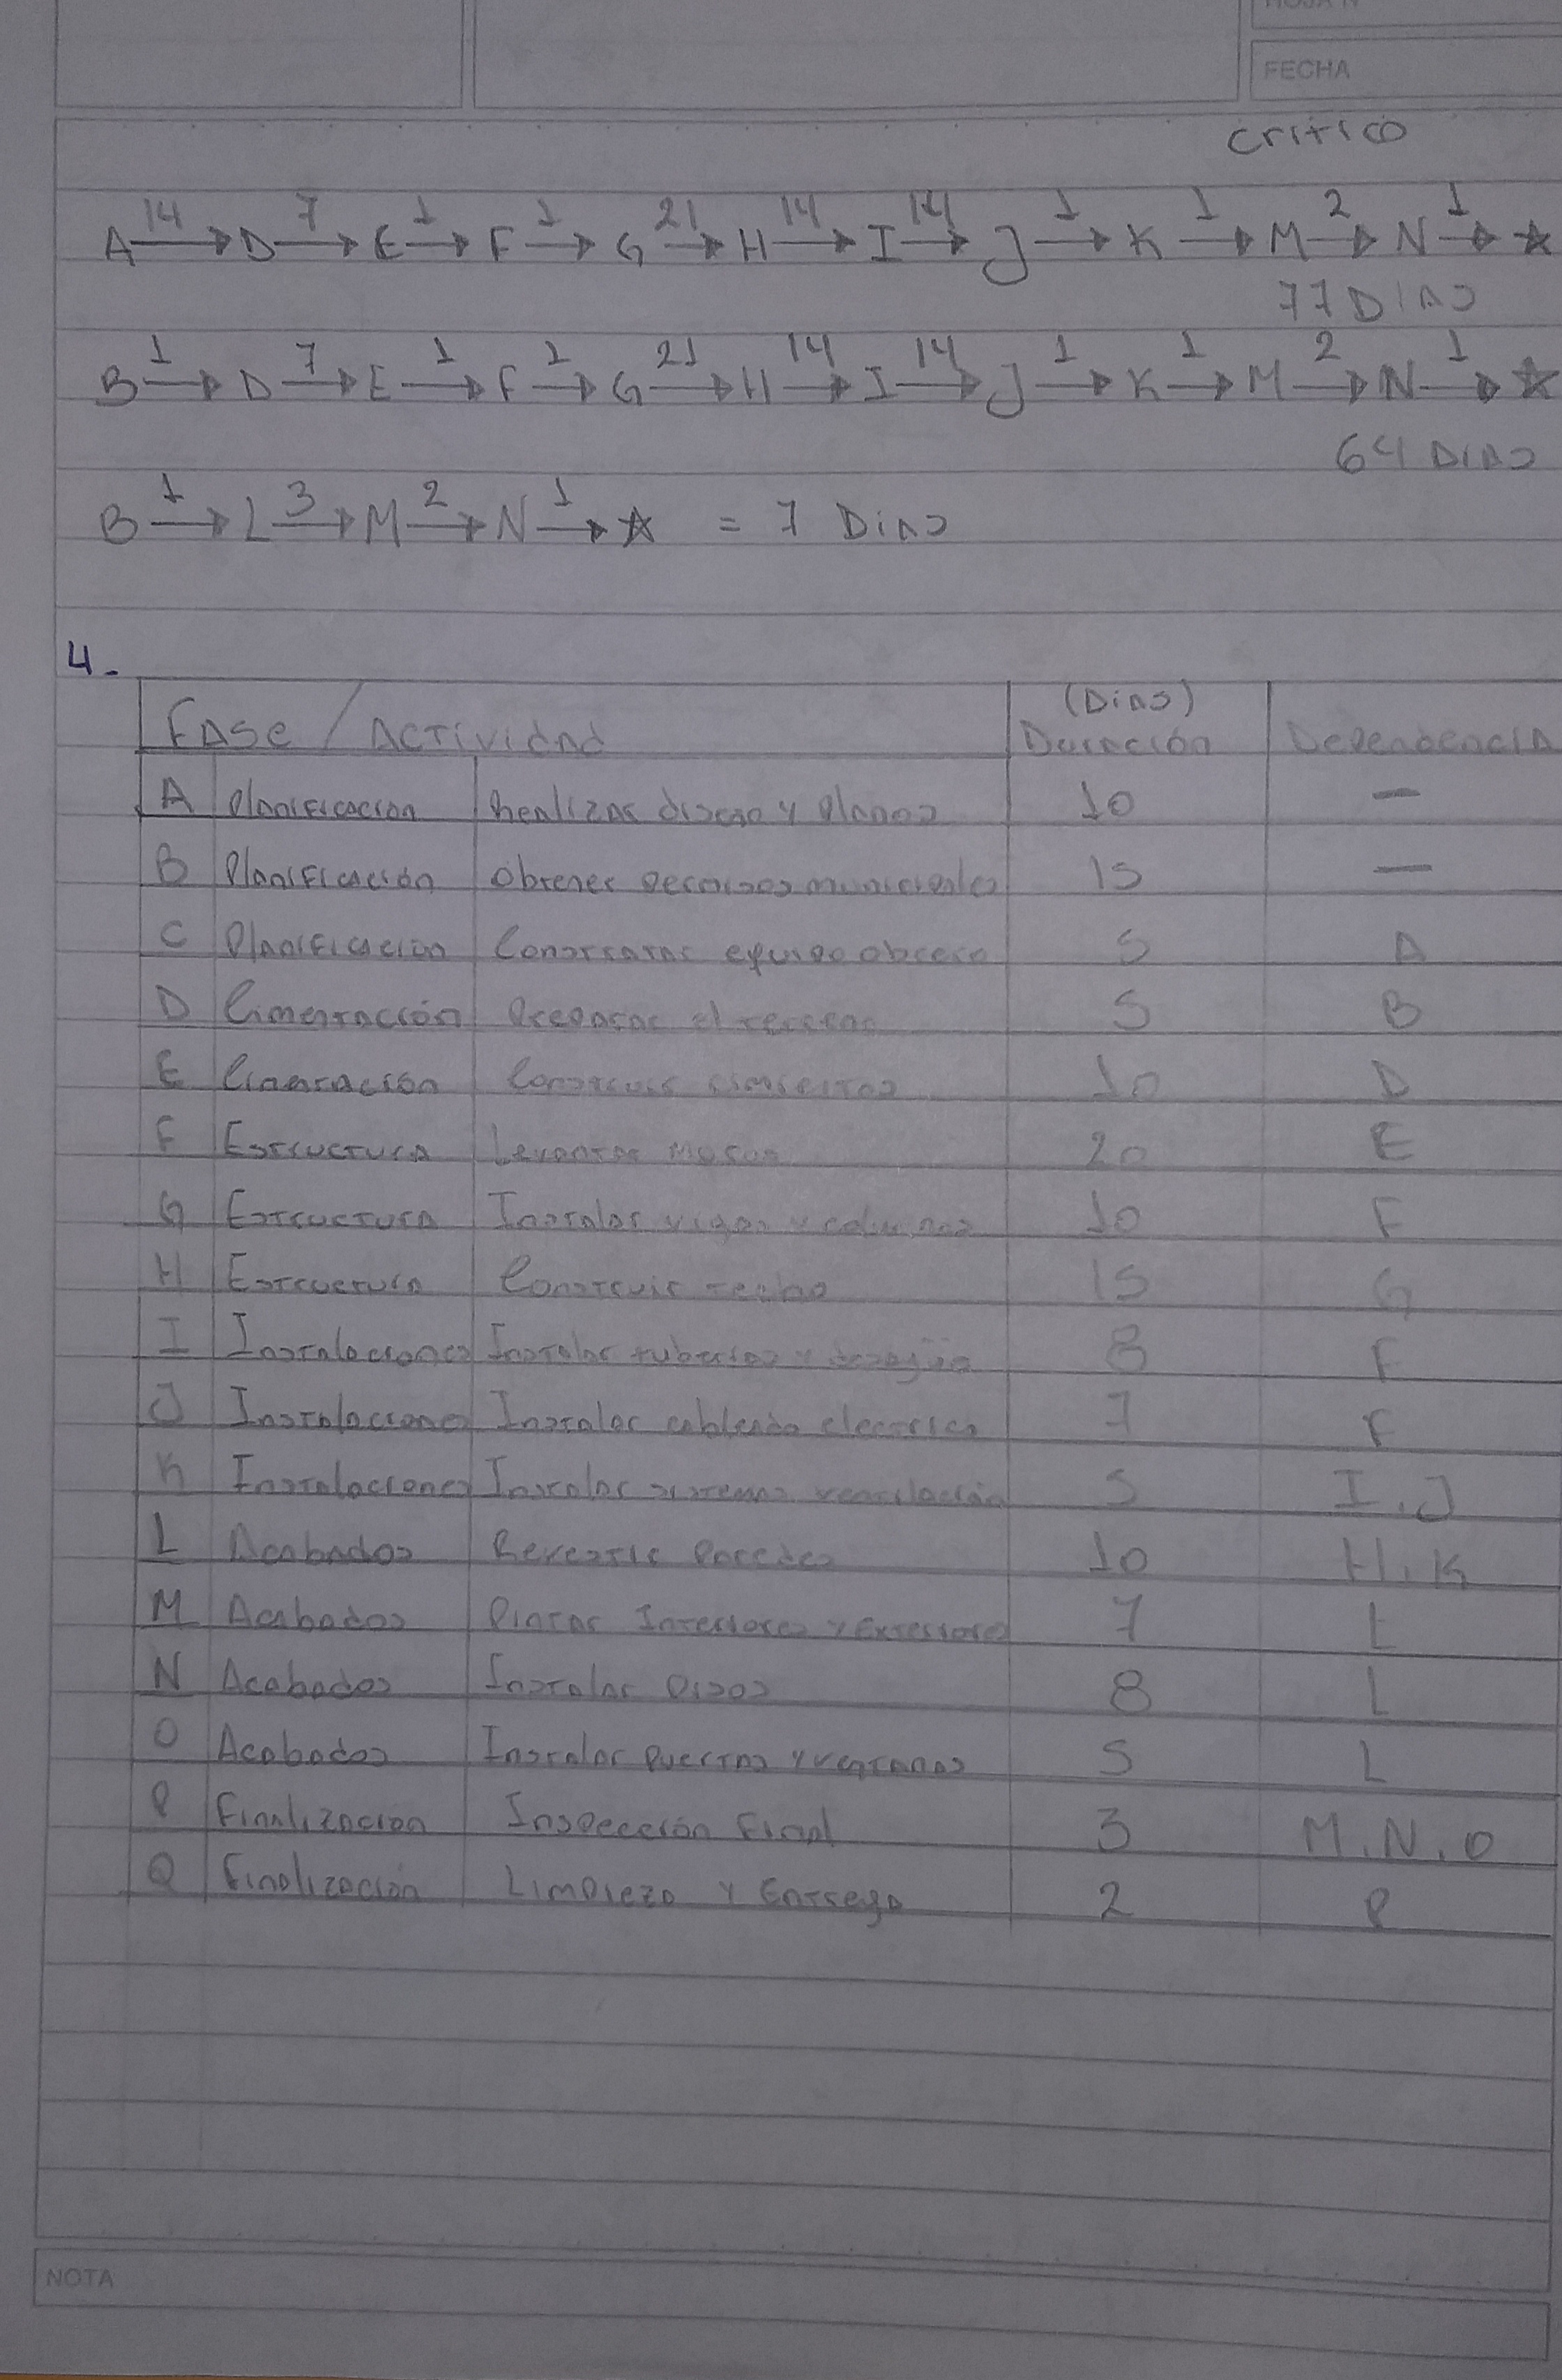 HOJA N
FECHA
Critico
A 14 → D 7 → E 1 → F 1 → G 21 → H 14 → I 14 → J 1 → K 1 → M 2 → N 1 → ☆
77 Dias
B 1 → D 7 → E 1 → F 1 → G 21 → H 14 → I 14 → J 1 → K 1 → M 2 → N 1 → ☆
64 Dias
B 1 → L 3 → M 2 → N 1 → ☆ = 7 Dias
4.-
Fase / Actividad (Dias) Duración Dependencia
A Planificacion Realizar diseño y Planos 10 —
B Planificación Obtener Permisos municipales 15 —
C Planificación Contratar equipo obrero 5 A
D Cimentacción Preparar el terreno 5 B
E Cimentación Construir cimientos 10 D
F Estructura Levantar muros 20 E
G Estructura Instalar vigas y columnas 10 F
H Estructura Construir techo 15 G
I Instalaciones Instalar tuberias y desagüe 8 F
J Instalaciones Instalar cableado electrico 7 F
K Instalaciones Instalar sistemas ventilación 5 I, J
L Acabados Revestir Paredes 10 H, K
M Acabados Pintar Interiores y Exteriores 7 L
N Acabados Instalar Pisos 8 L
O Acabados Instalar Puertas y ventanas 5 L
P Finalizacion Inspección Final 3 M, N, O
Q Finalización Limpieza y Entrega 2 P
NOTA